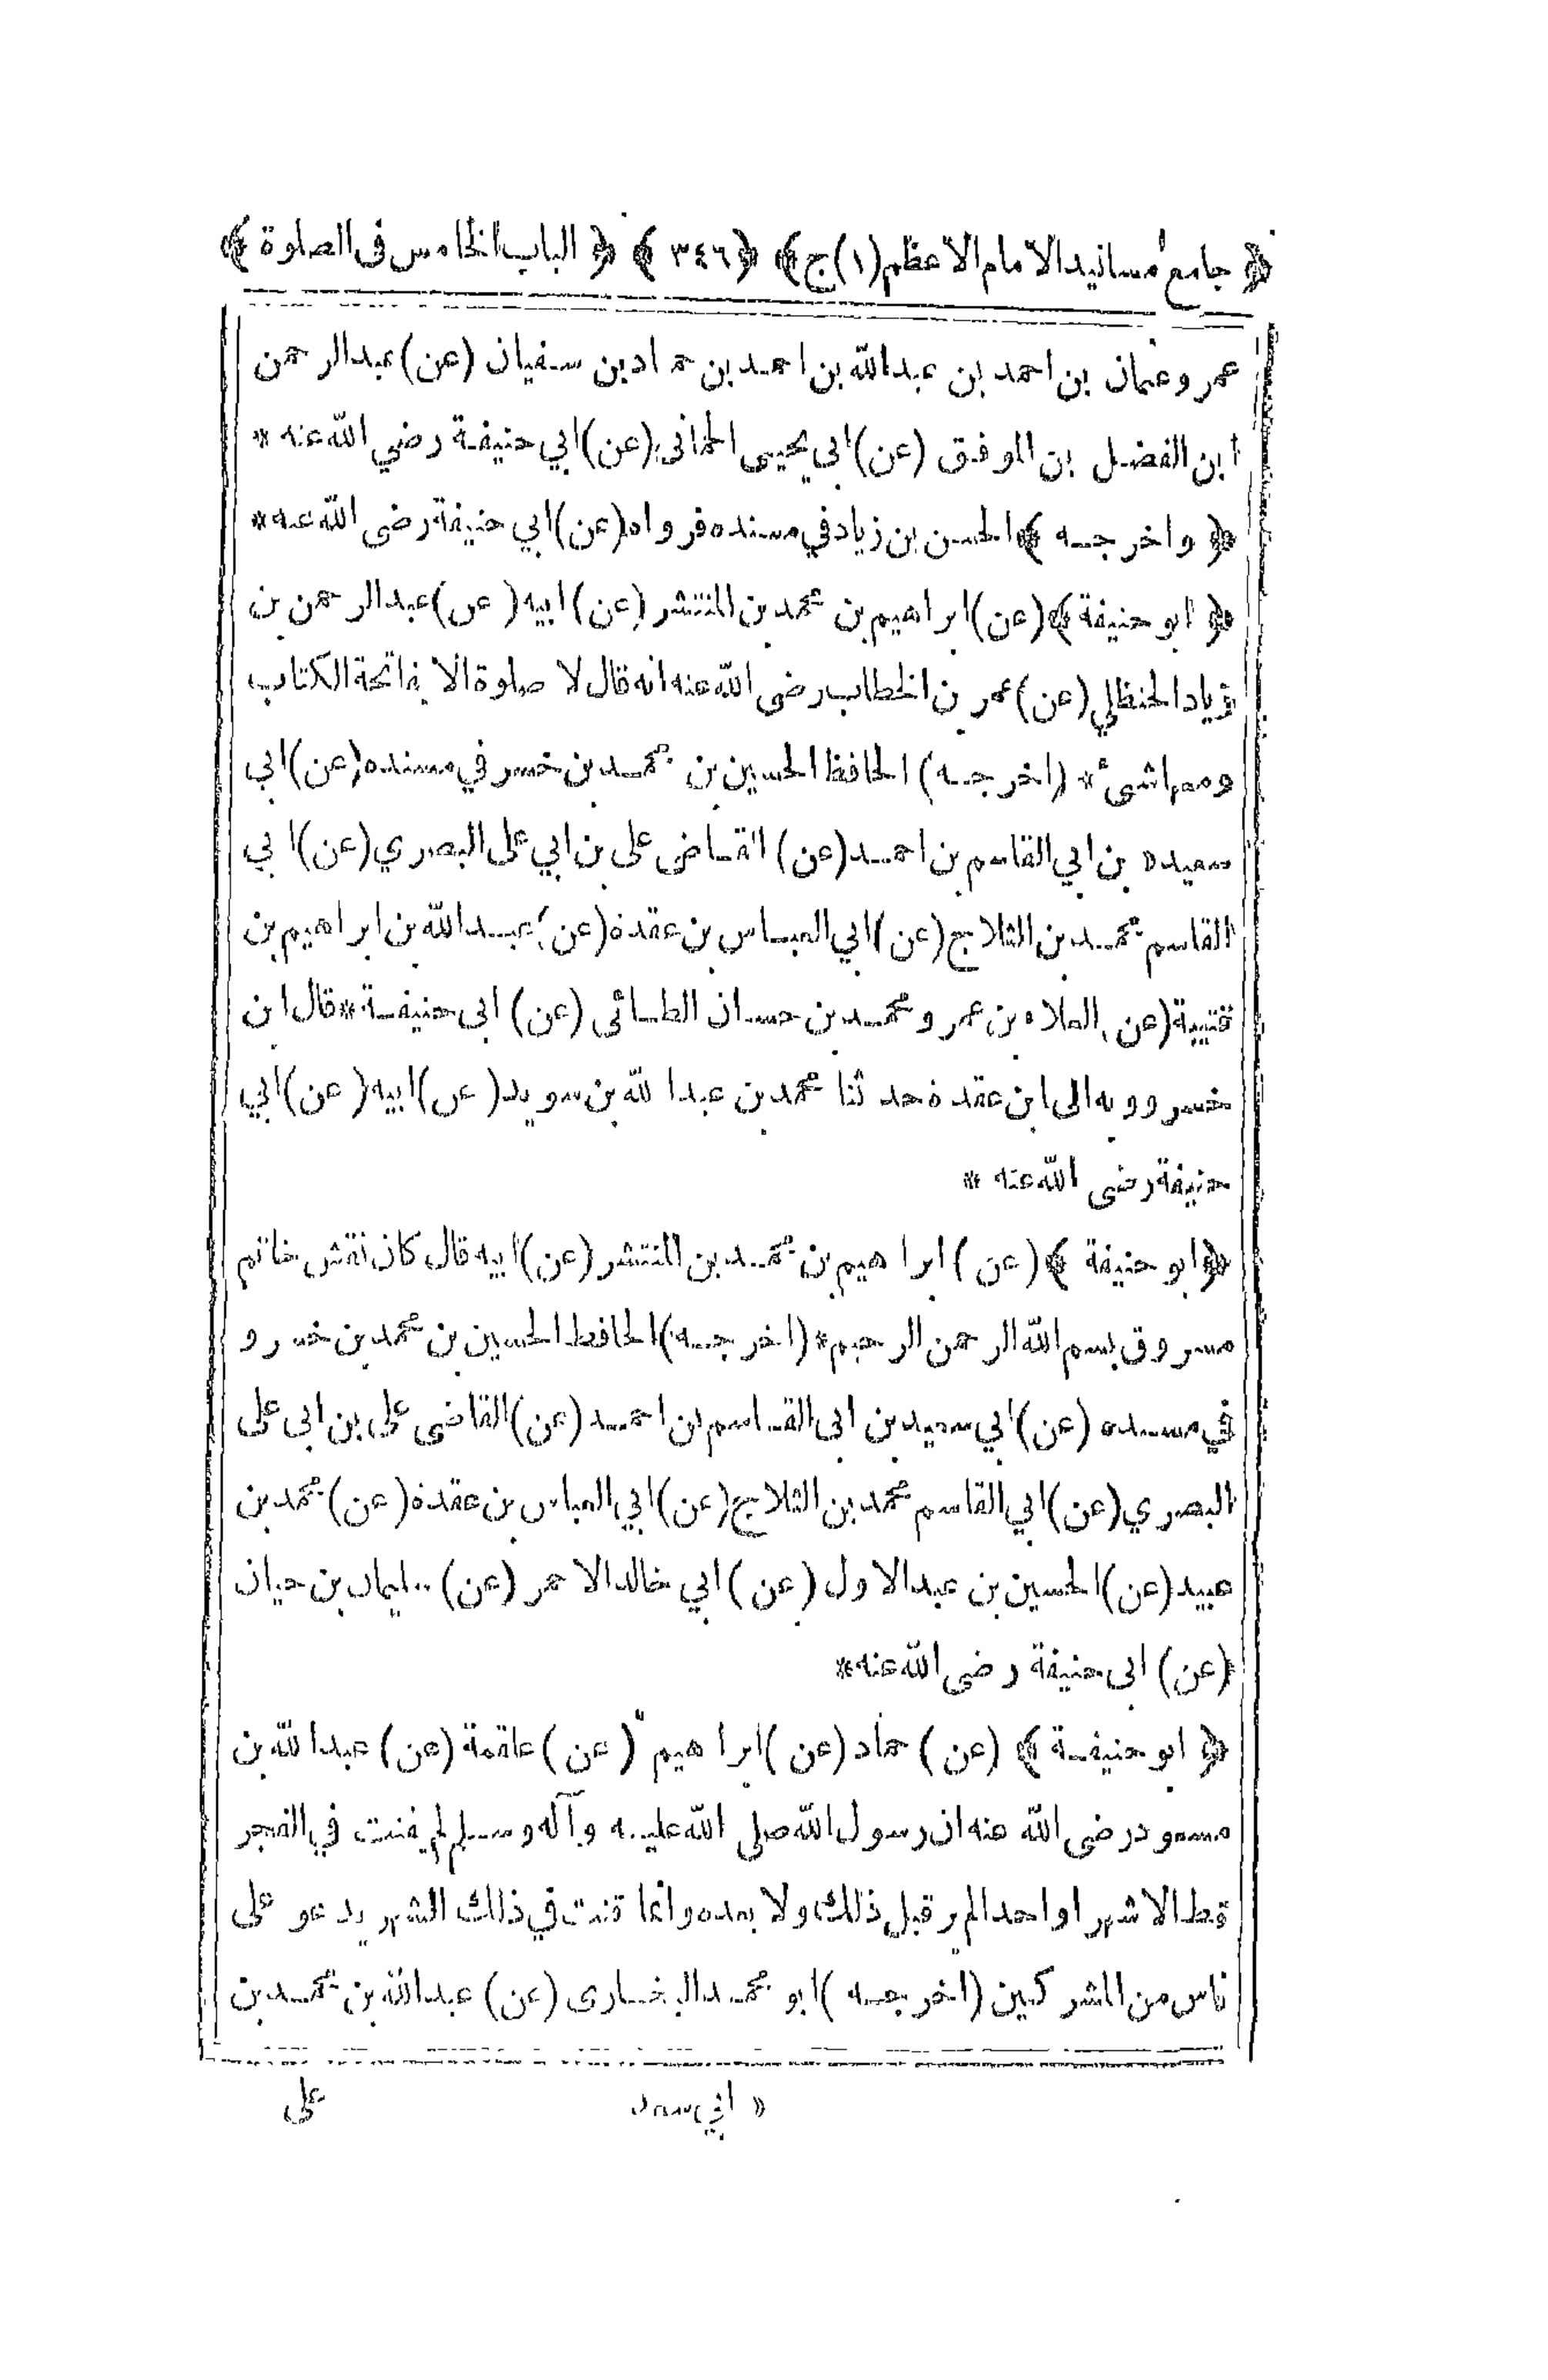 ﴿ جامع مسانيد الامام الاعظم (١) ج ﴾ ﴿ ٣٤٦ ﴾ ﴿ الباب الخامس فى الصلوة ﴾
عمر وعمان بن احمد بن عبدالله بن احمد بن حماد بن سفيان (عن) عبدالرحمن
ابن الفضل بن الموفق (عن) ابى يحيى الحمانى (عن) ابي حنيفة رضي الله عنه *
﴿ واخرجه ﴾ الحسن بن زياد في مسنده فرواه (عن) ابي حنيفة رضى الله عنه *
﴿ ابو حنيفة ﴾ (عن) ابراهيم بن محمد بن المنتشر (عن) ابيه (عن) عبدالرحمن بن
زياد الحنظلي (عن) عمر بن الخطاب رضى الله عنه انه قال لا صلوة الا بفاتحة الكتاب
ومعها شئ * (اخرجه) الحافظ الحسين بن محمد بن خسر في مسنده (عن) ابي
سعيد « بن ابي القاسم بن احمد (عن) القاضى على بن ابي على البصري (عن) ابي
القاسم محمد بن الثلاج (عن) ابي العباس بن عقدة (عن) عبدالله بن ابراهيم بن
قتيبة (عن) العلاء بن عمر ومحمد بن حسان الطائى (عن) ابى حنيفة * قال ابن
خسرو وبه الى ابن عقدة حدثنا محمد بن عبدالله بن سويد (عن) ابيه (عن) ابي
حنيفة رضى الله عنه *
﴿ ابو حنيفة ﴾ (عن) ابراهيم بن محمد بن المنتشر (عن) ابيه قال كان نقش خاتم
مسروق بسم الله الرحمن الرحيم * (اخرجه) الحافظ الحسين بن محمد بن خسرو
في مسنده (عن) ابي سعيد بن ابى القاسم بن احمد (عن) القاضى على بن ابى على
البصري (عن) ابي القاسم محمد بن الثلاج (عن) ابي العباس بن عقدة (عن) محمد بن
عبيد (عن) الحسين بن عبدالاول (عن) ابي خالد الاحمر (عن) سليمان بن حيان
(عن) ابى حنيفة رضى الله عنه *
﴿ ابو حنيفة ﴾ (عن) حماد (عن) ابراهيم (عن) علقمة (عن) عبدالله بن
مسعود رضى الله عنه ان رسول الله صلى الله عليه وآله وسلم لم يقنت في الفجر
قط الا شهرا واحدا لم ير قبل ذلك ولا بعده وانما قنت في ذلك الشهر يدعو على
ناس من المشركين (اخرجه) ابو محمد البخارى (عن) عبدالله بن محمد بن
« ابي سعد
على